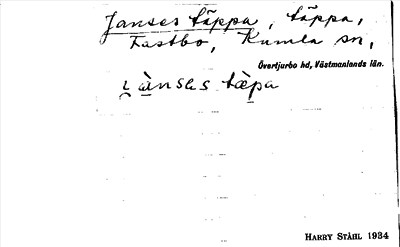 Janses täppa, täppa,
Fastbo, Kumla sn,
Övertjurbo hd, Västmanlands län.
HARRY STÅHL 1934